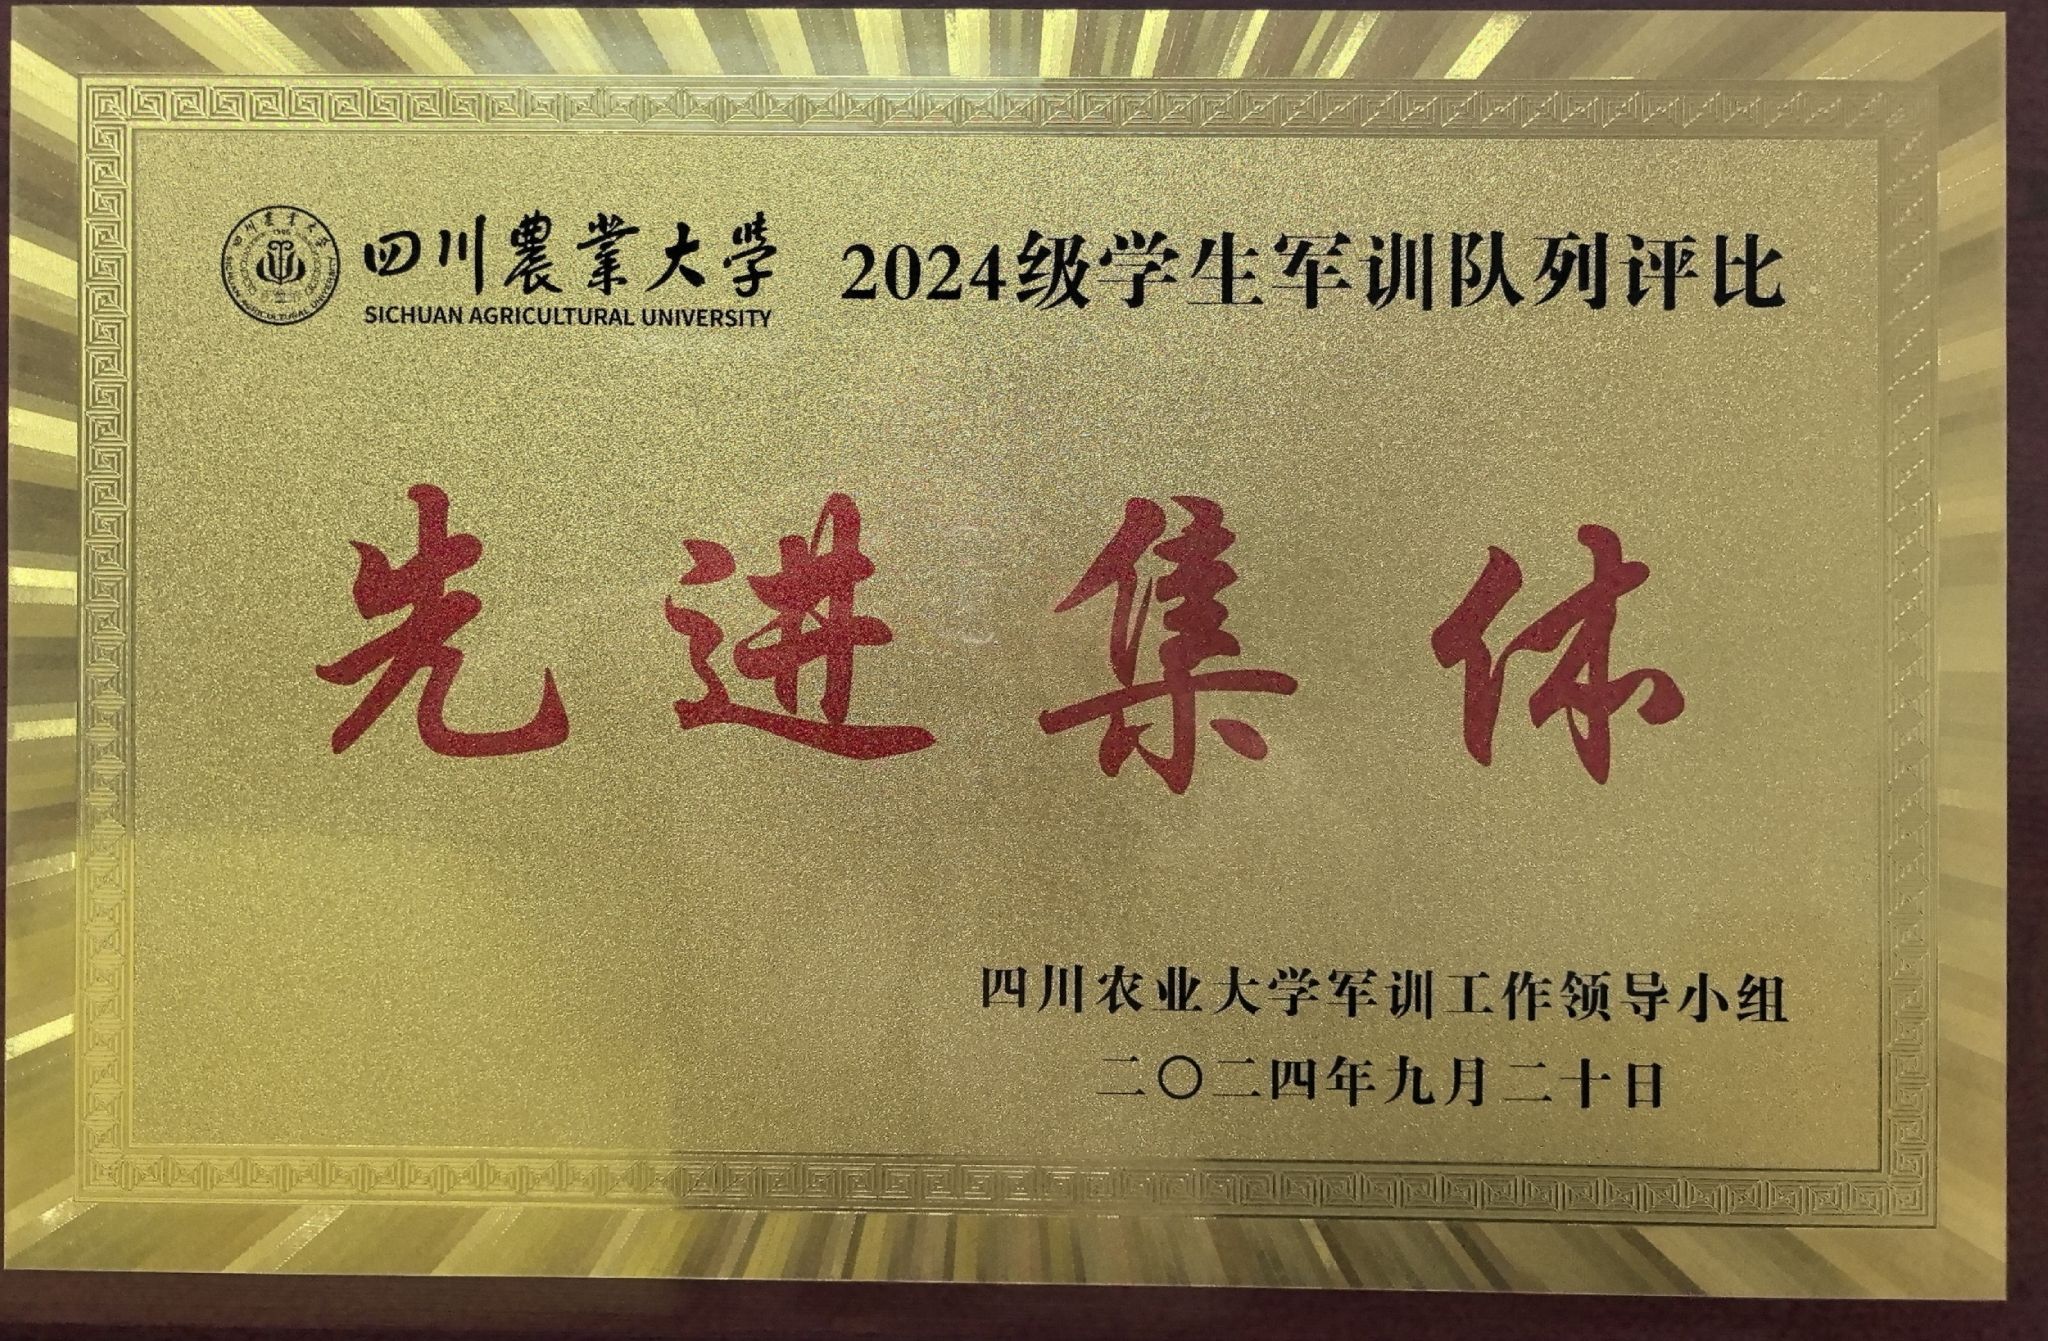 四川農業大学 2024级学生军训队列评比
SICHUAN AGRICULTURAL UNIVERSITY
先进集体
四川农业大学军训工作领导小组
二〇二四年九月二十日